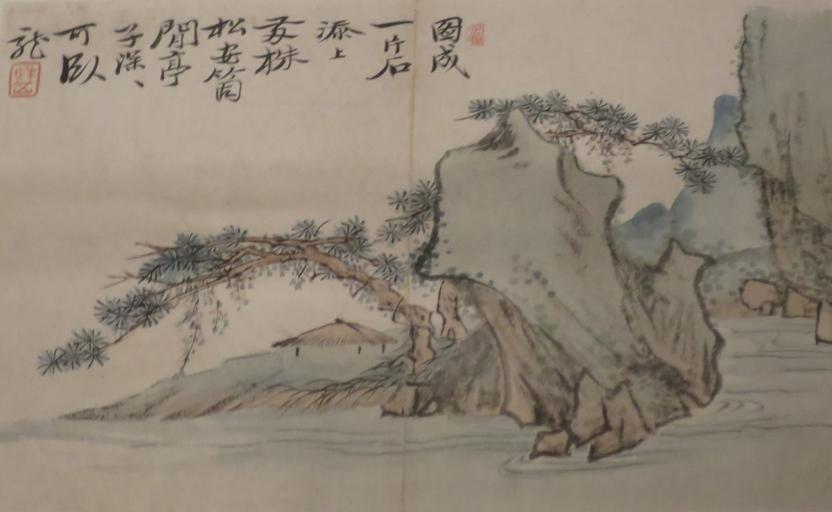 圖成
一片石
添上
幾株
松安箇
閒亭
子深〻
可臥
龍